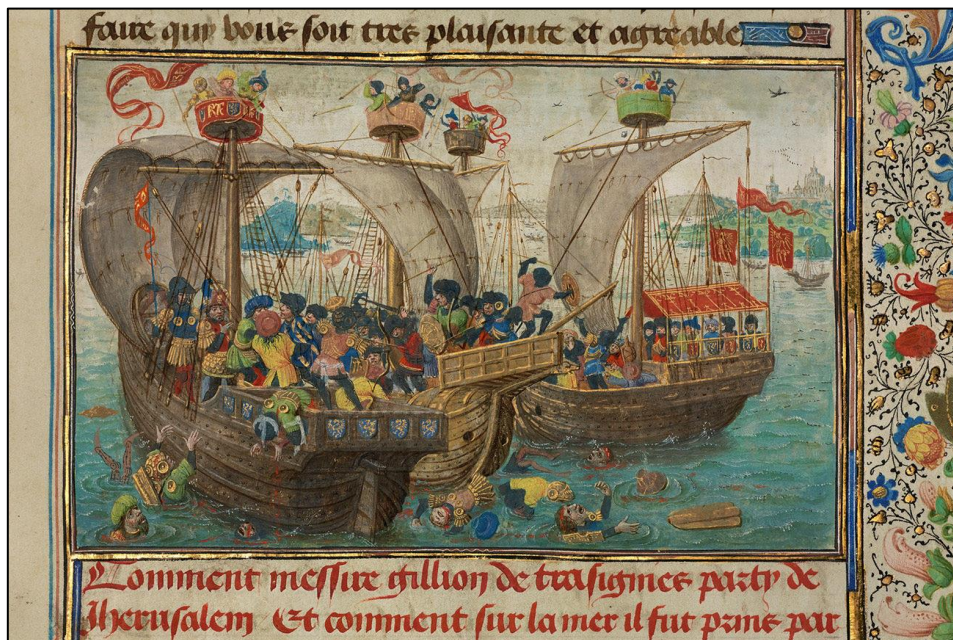 faire qui vous soit tres plaisante et agreable
Comment messire gillion de trasignies party de
Jherusalem Et comment sur la mer il fut prins par